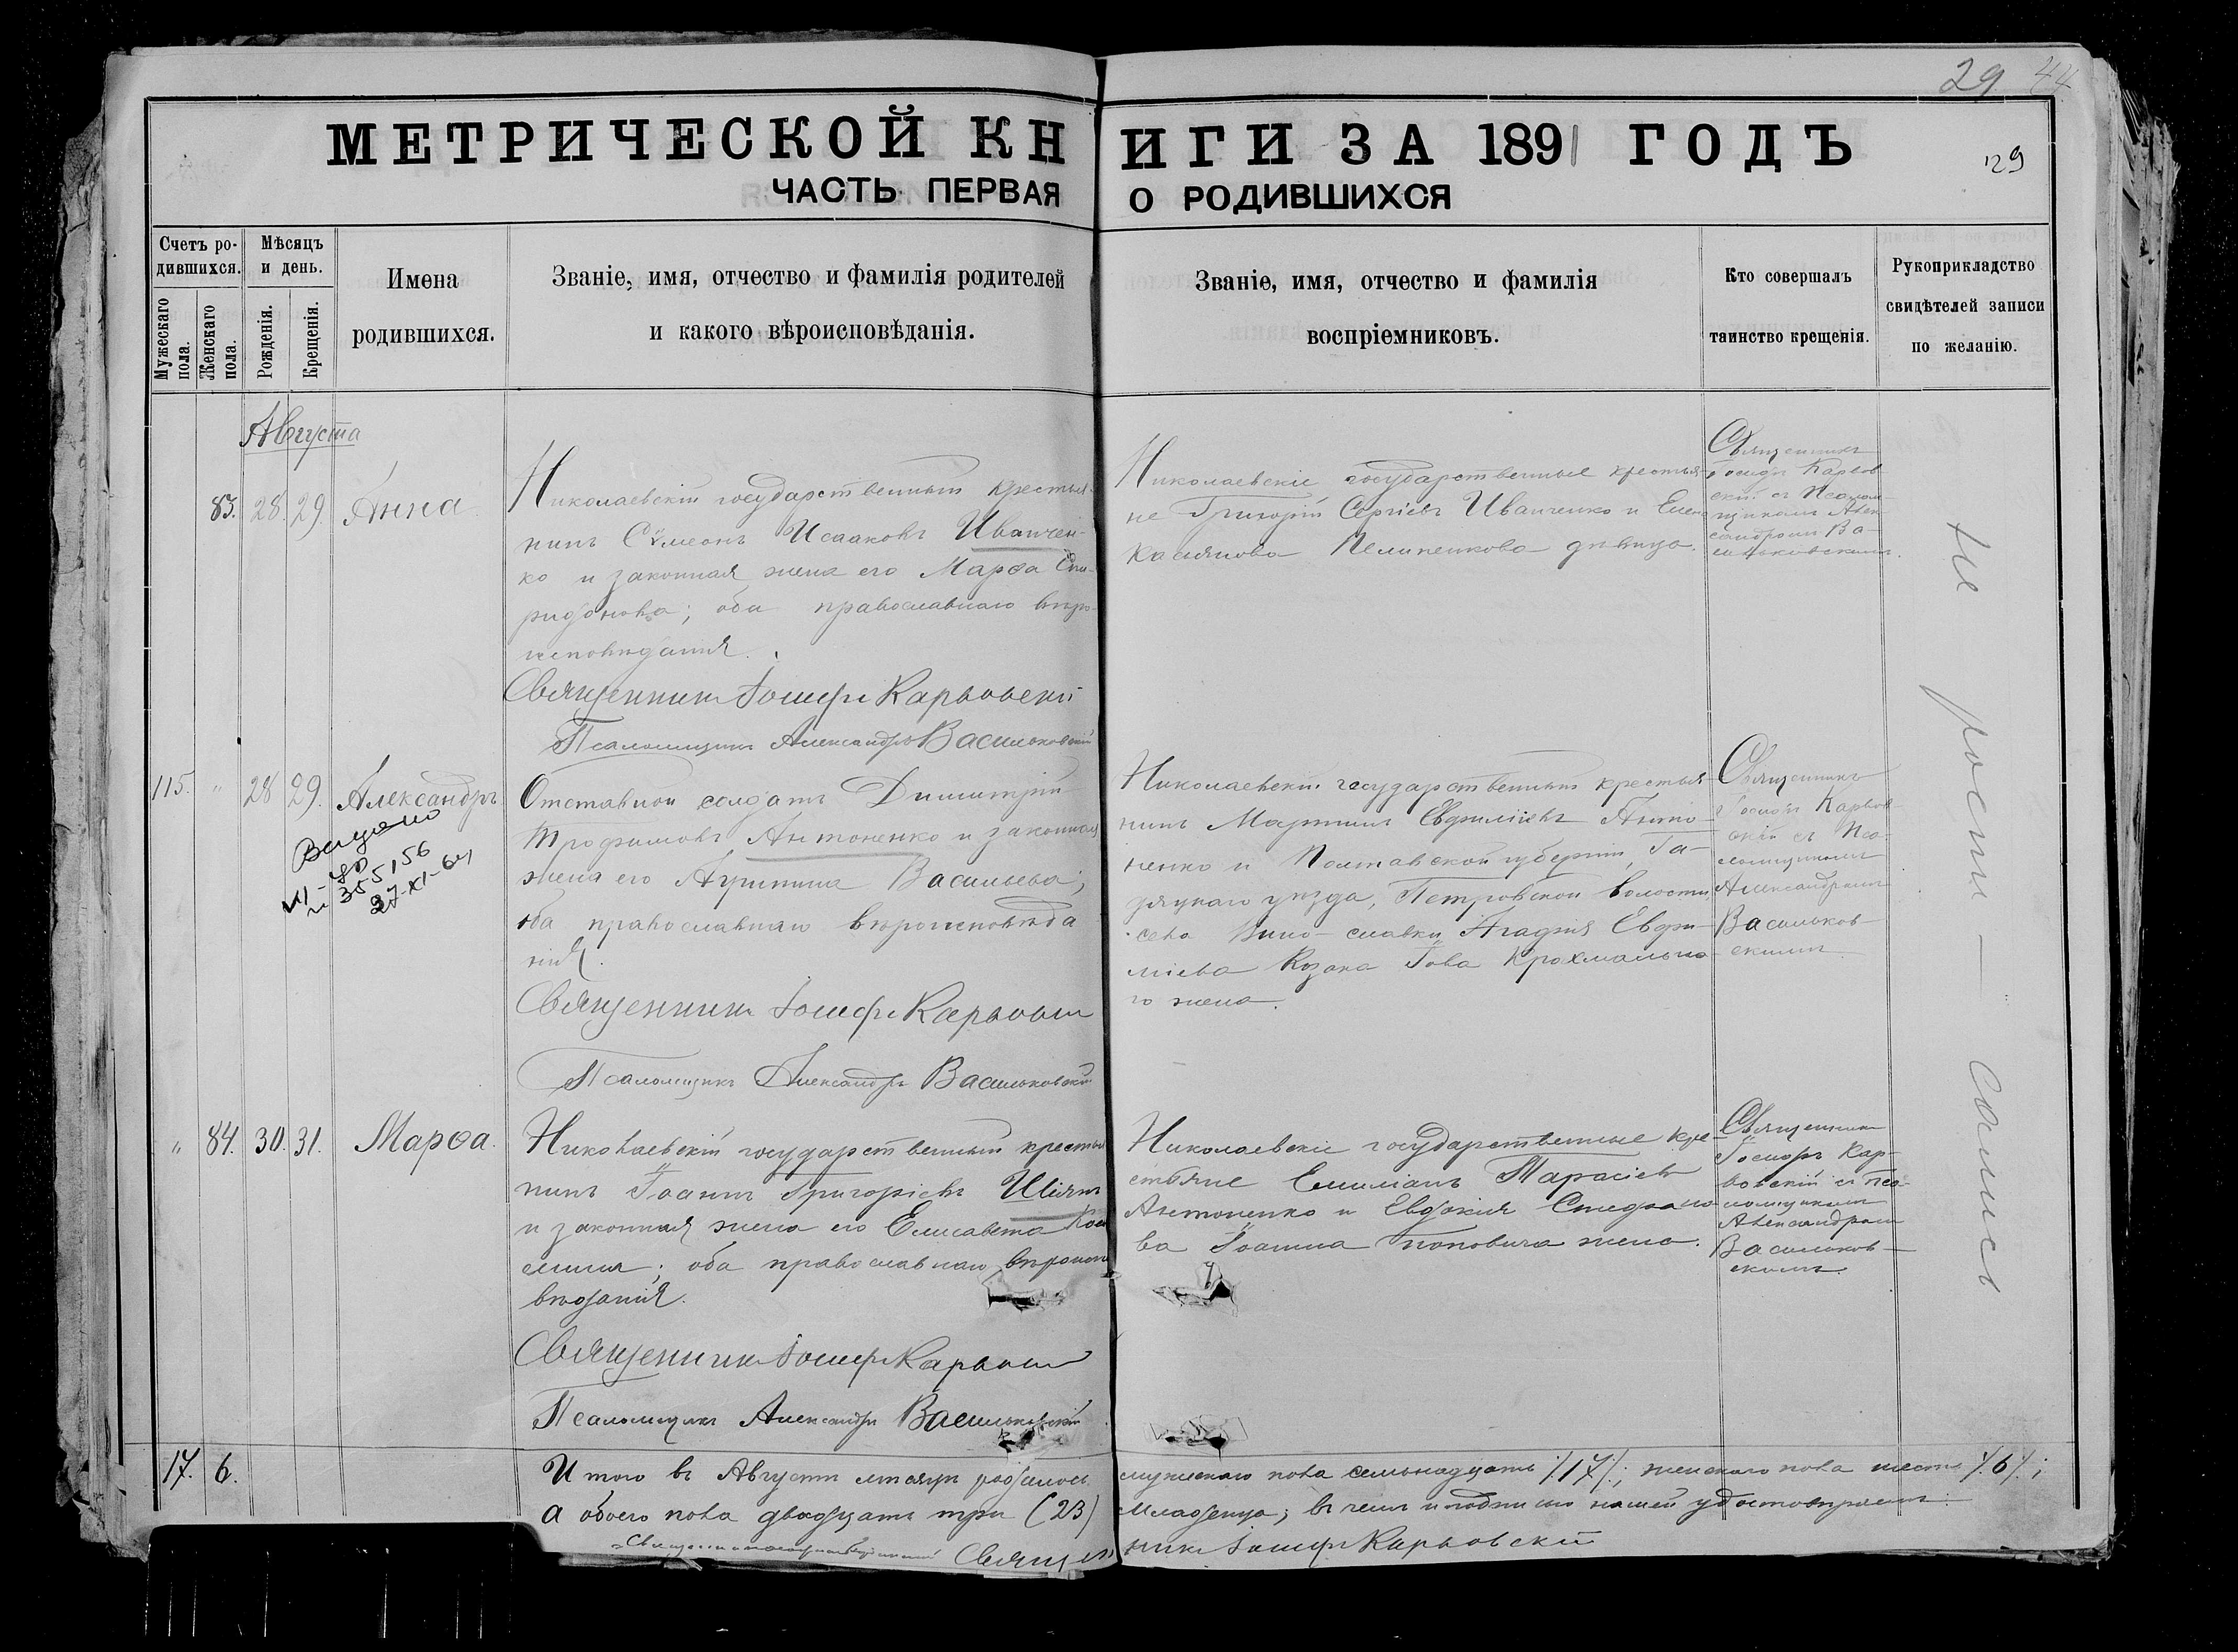 29 44
МЕТРИЧЕСКОЙ КНИГИ ЗА 1891 ГОДЪ
29
ЧАСТЬ ПЕРВАЯ О РОДИВШИХСЯ
Счетъ ро-
дившихся.
Мужескаго пола.
Женскаго пола.
Мѣсяцъ
и день.
Рожденія.
Крещенія.
Имена
родившихся.
Званіе, имя, отчество и фамилія родителей
и какого вѣроисповѣданія.
Званіе, имя, отчество и фамилія
воспріемниковъ.
Кто совершалъ
таинство крещенія.
Рукоприкладство
свидѣтелей записи
по желанію.
Августа
83. 28. 29. Анна
Николаевскій государственный крестья-
нинъ Сѵмеонъ Исааковъ Иванчен-
ко и законная жена его Марѳа Спи-
ридонова; оба православнаго вѣро-
исповѣданія.
Священникъ Іосифъ Карвовскій
Псаломщикъ Александръ Васильковскій
Николаевскіе государственные крестья-
не Григорій Сергіевъ Иванченко и Елена
Касіянова Пелипенкова дѣвица.
Священникъ
Іосифъ Карвов
скій съ Псалом-
щикомъ Алек
сандромъ Ва-
сильковскимъ.
115. " 28 29. Александръ
Отставной солдатъ Димитрій
Трофимовъ Антоненко и законная
жена его Агрипина Васильева;
оба православнаго вѣроисповѣда
нія.
Священникъ Іосифъ Карвовскій
Псаломщикъ Александръ Васильковскій
Выдано
VI-ЯР
№ 355156
27-XI-64
Николаевскій государственный крестья-
нинъ Мартинъ Евфиміевъ Анто-
ненко и Полтавской губерніи, Га-
дяцкаго уѣзда, Петровской волости,
села Агафія Евфи-
міева Козака Іова Крохмально
го жена.
Священникъ
Іосифъ Карвов
скій съ Пса-
ломщикомъ
Александромъ
Васильков-
скимъ
" 84. 30. 31. Марѳа.
Николаевскій государственный крестья
нинъ Іоаннъ Григоріевъ Шіянъ
и законная жена его Елисавета Кос
мина; оба православнаго вѣроиспо
вѣданія.
Священникъ Іосифъ Карвовскій
Псаломщикъ Александръ Васильковскій
Николаевскіе государственные кре-
стьяне Емиліанъ Тарасіевъ
Антоненко и Евдокія Стефано-
ва Іоанна Поповича жена.
Священникъ
Іосифъ Кар-
вовскій съ Пса-
ломщикомъ
Александромъ
Васильков-
скимъ.
не рости — сались
17. 6.
Итого въ Августѣ мѣсяцѣ родилось мужескаго пола семьнадцать /.17/.; женскаго пола шесть /.6/.;
а обоего пола двадцать три (23) младенца; въ чемъ и подписью нашей удостовѣряемъ:
Священникъ Іосифъ Карвовскій